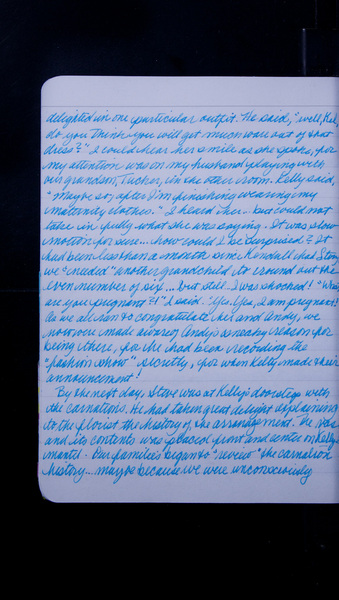 delighted in one particular outfit. He said, "well, Kel,
do you think you will get much wear out of that
dress?" I could hear her smile as she spoke, for
my attention was on my husband playing with
our grandson, Tucker, in the other room. Kelly said,
"Maybe so, after I'm finishing wearing my
maternity clothes." I heard her.. but could not
take in fully what she was saying. It was slow
motion for sure... how could I be surprised? It
had been less than a month since Kendall and Stacy
we "needed" another grandchild to round out the
even number of six... but still I was shocked! "What,
are you pregnant?!" I said. "Yes. Yes, I am pregnant!
As we all ran to congratulate her and Andy, we
now were made aware of Andy's sneaky reason for
being there, for he had been recording the
"fashion show" secretly, for when Kelly made their
announcement!
By the next day, Steve was at Kelly's doorstep with
the carnations. He had taken great delight explaining
to the florist the history of the arrangement. The vase
and its contents was placed front and center on Kelly's
mantel. Our families began to "revere" the carnation
history... maybe because we were unconsciously